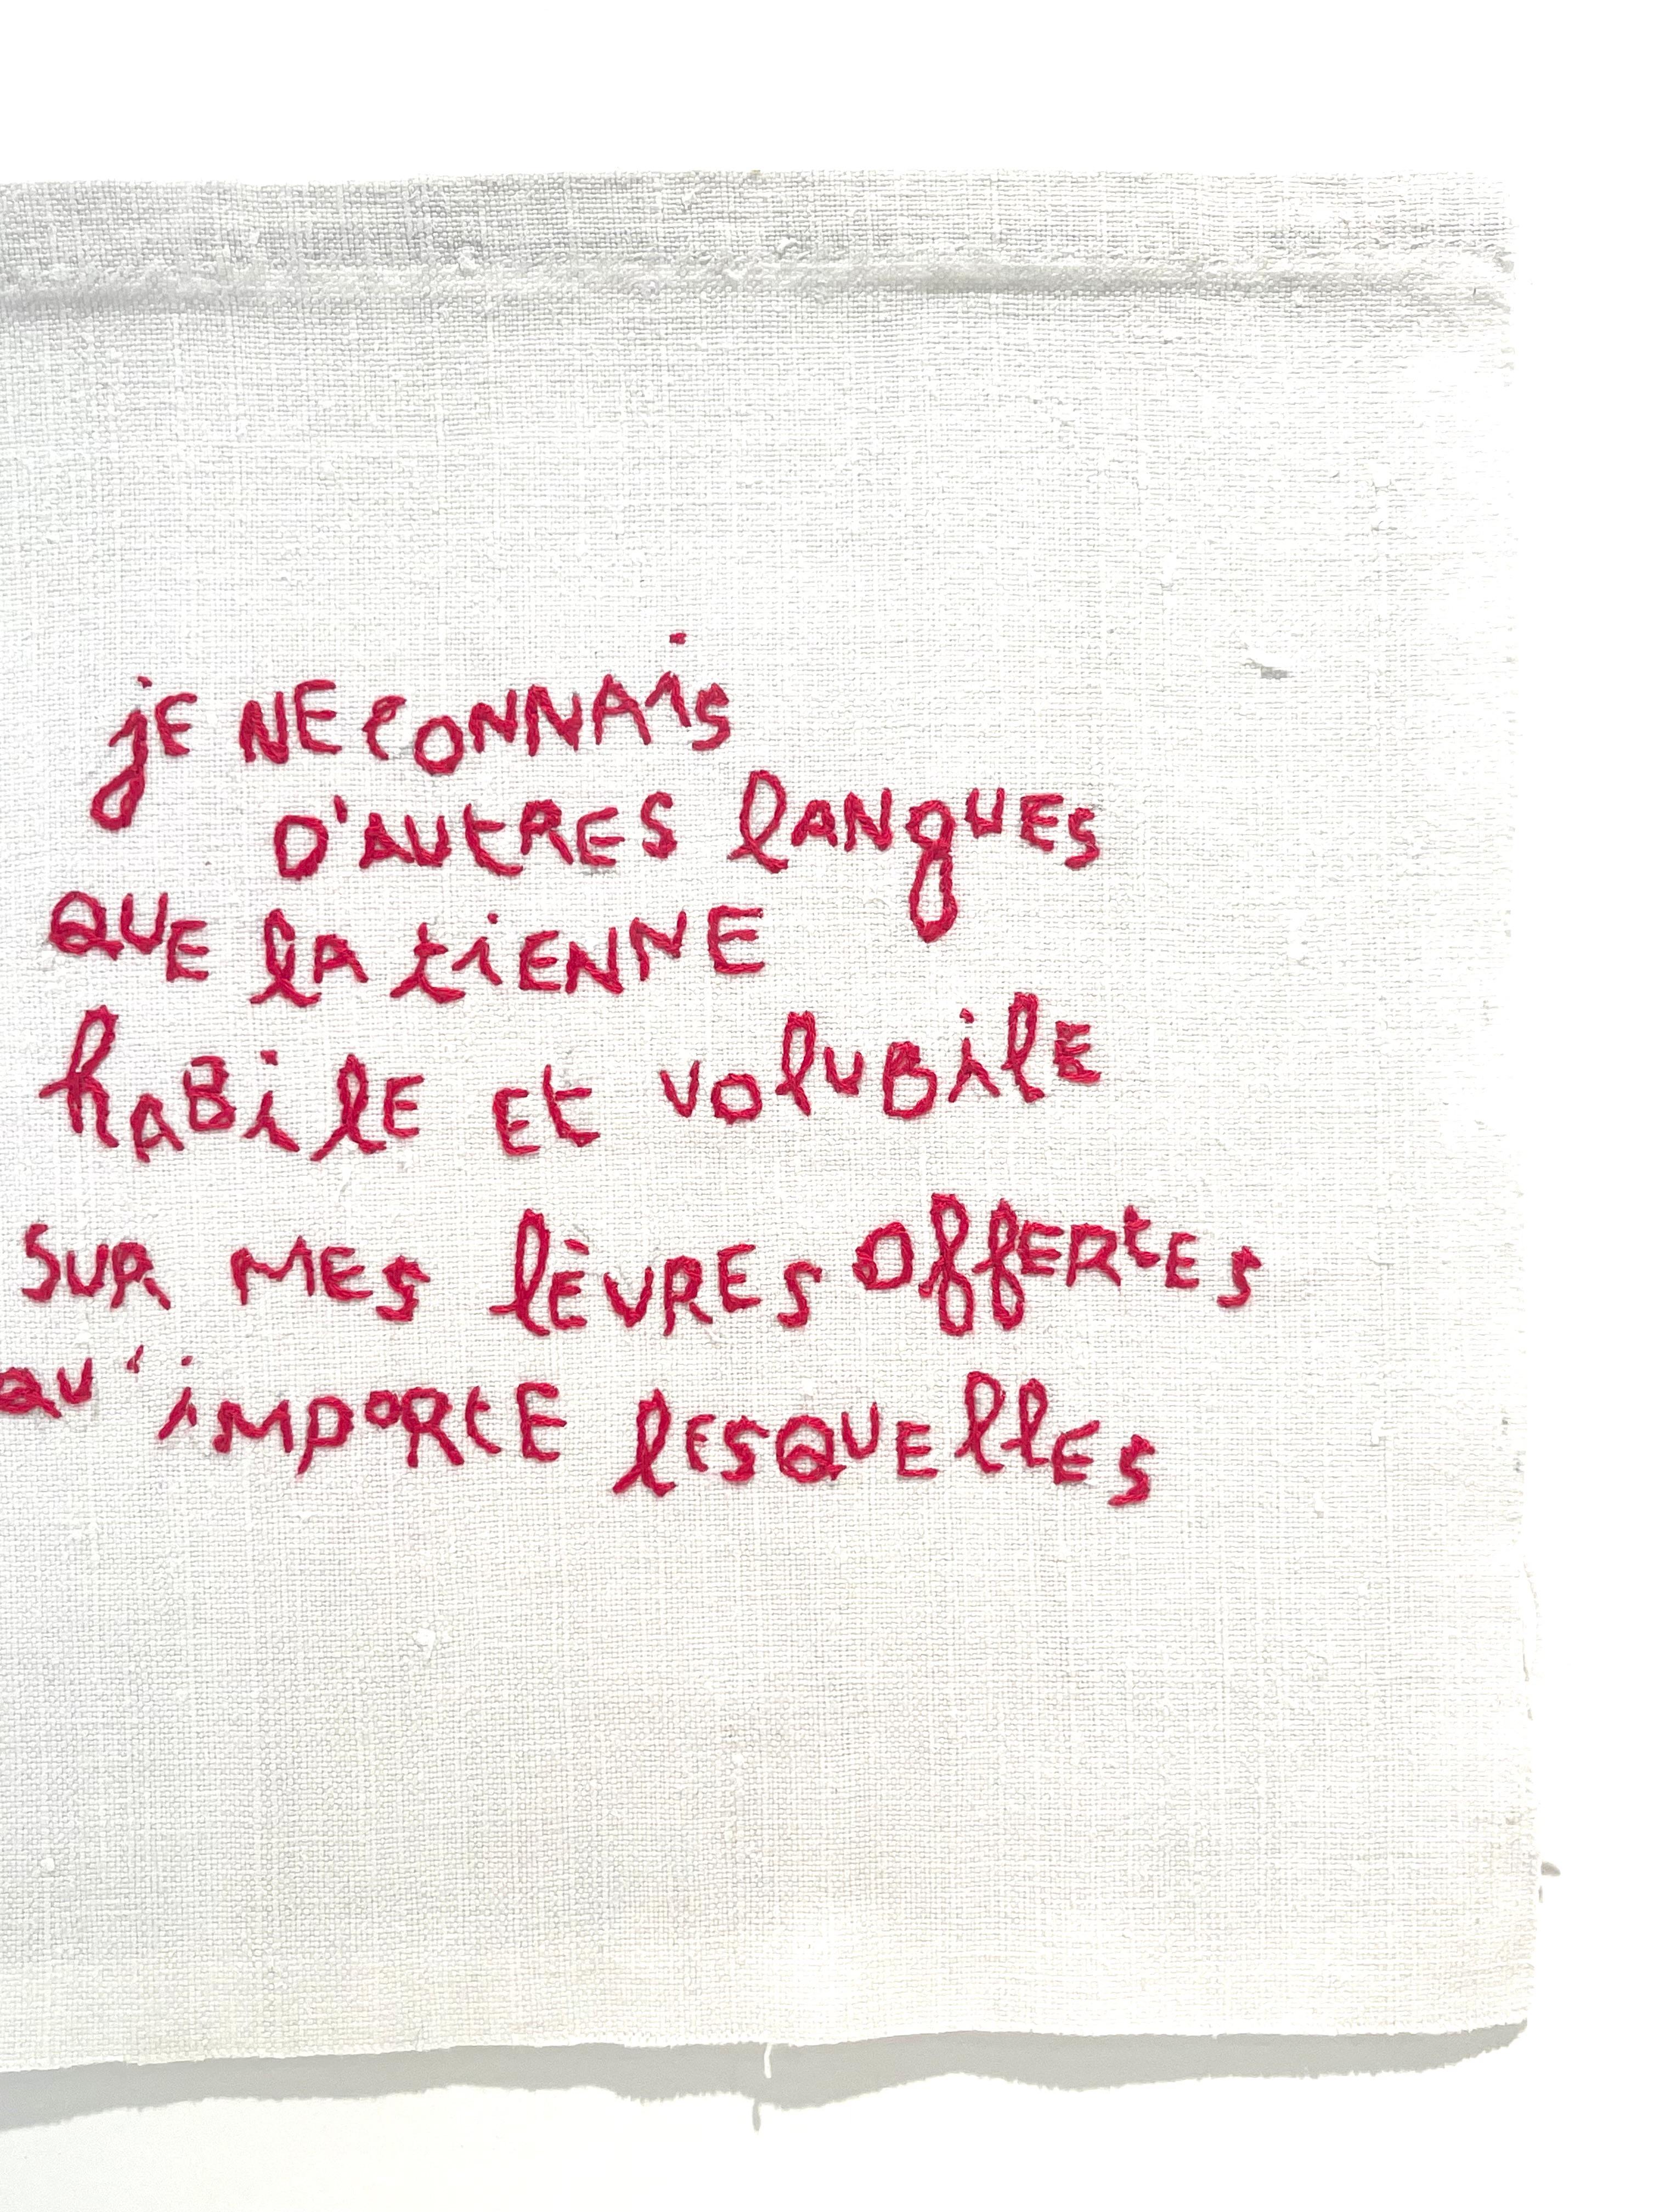 jE NE CONNAiS
D'AUtRES lANgUES
QUE lA tiENNE
hABilE Et VOlUBilE
SUR MES lÈVRES OffERtES
QU'iMPORtE lESQUEllES